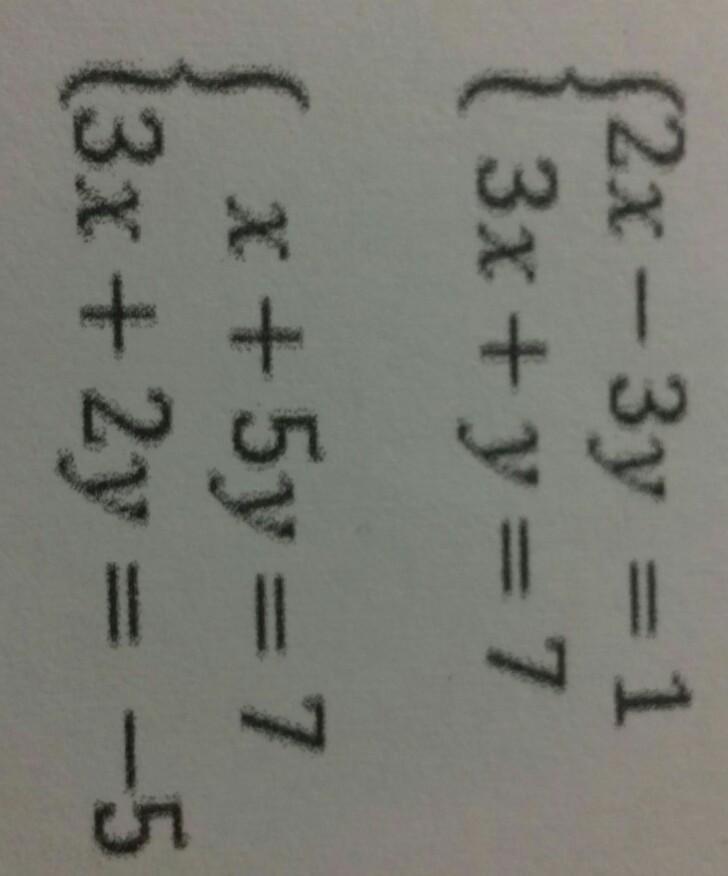 2x − 3y = 1
3x + y = 7
x + 5y = 7
3x + 2y = −5